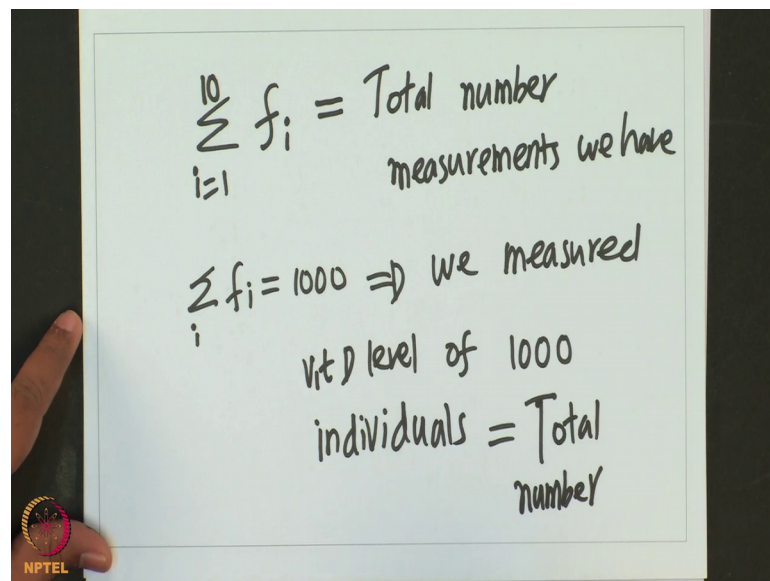 10
∑ fᵢ = Total number
i=1
measurements we have
∑ fᵢ = 1000 ⇒ we measured
i
Vit D level of 1000
individuals = Total
number
NPTEL